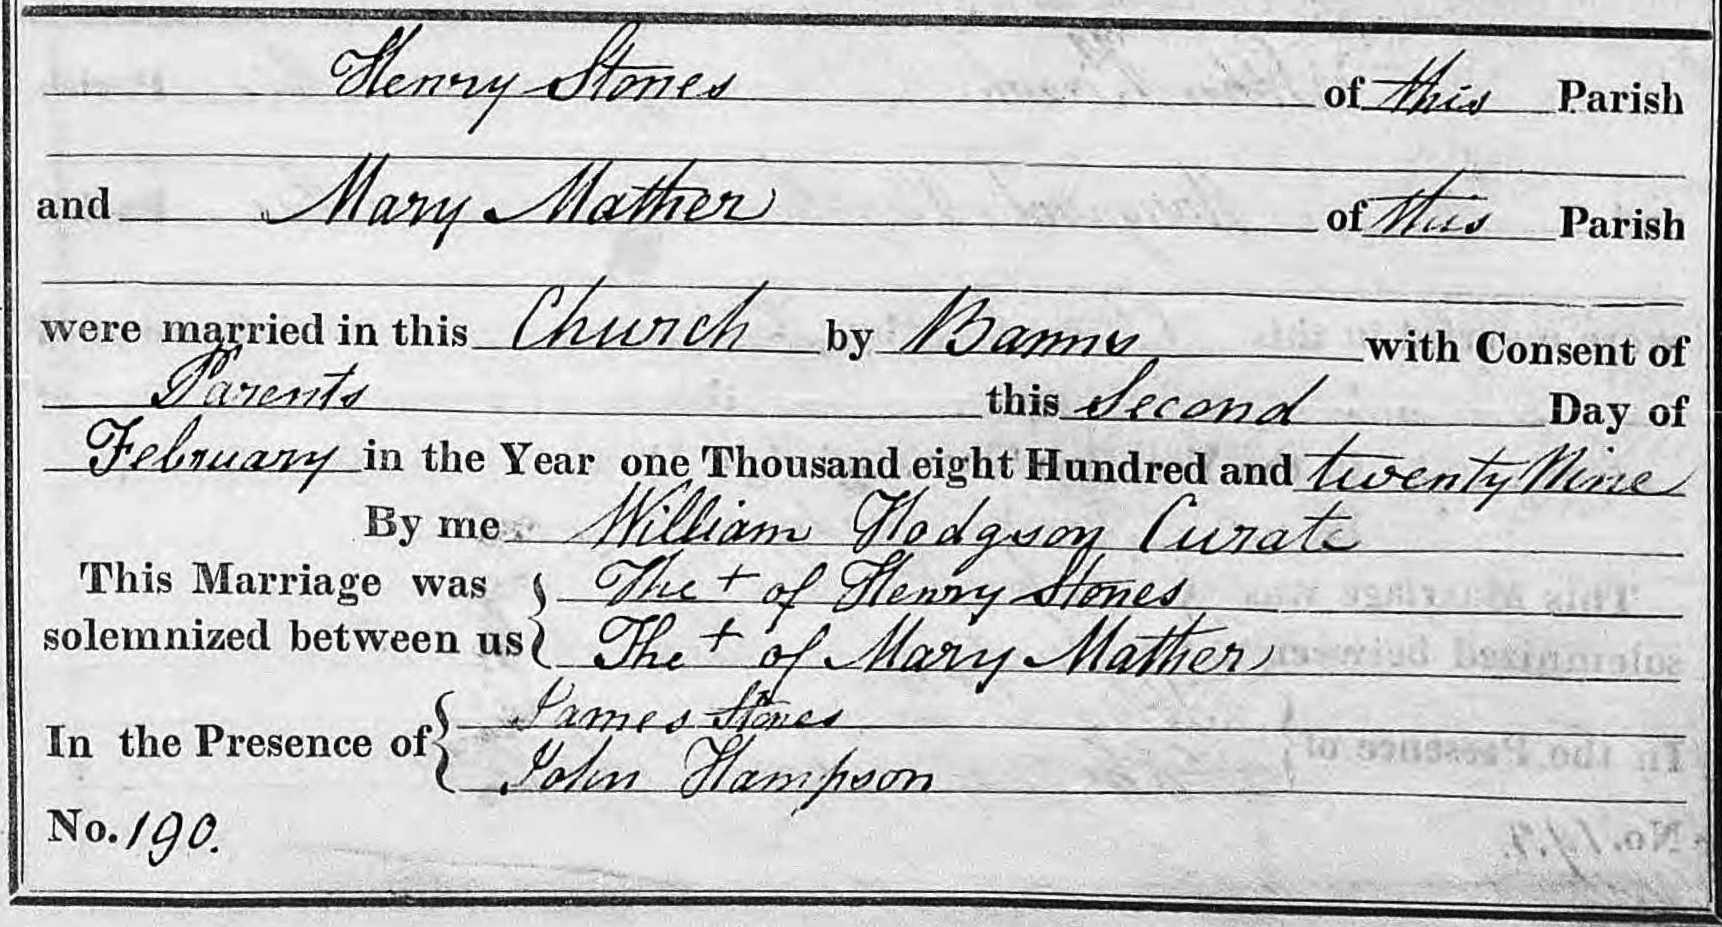 Henry Stones of this Parish
and Mary Mather of this Parish
were married in this Church by Banns with Consent of
Parents this Second Day of
February in the Year one Thousand eight Hundred and twenty Nine
By me William Hodgson Curate
This Marriage was solemnized between us { The + of Henry Stones
The + of Mary Mather
In the Presence of { James Stones
John Hampson
No. 190.